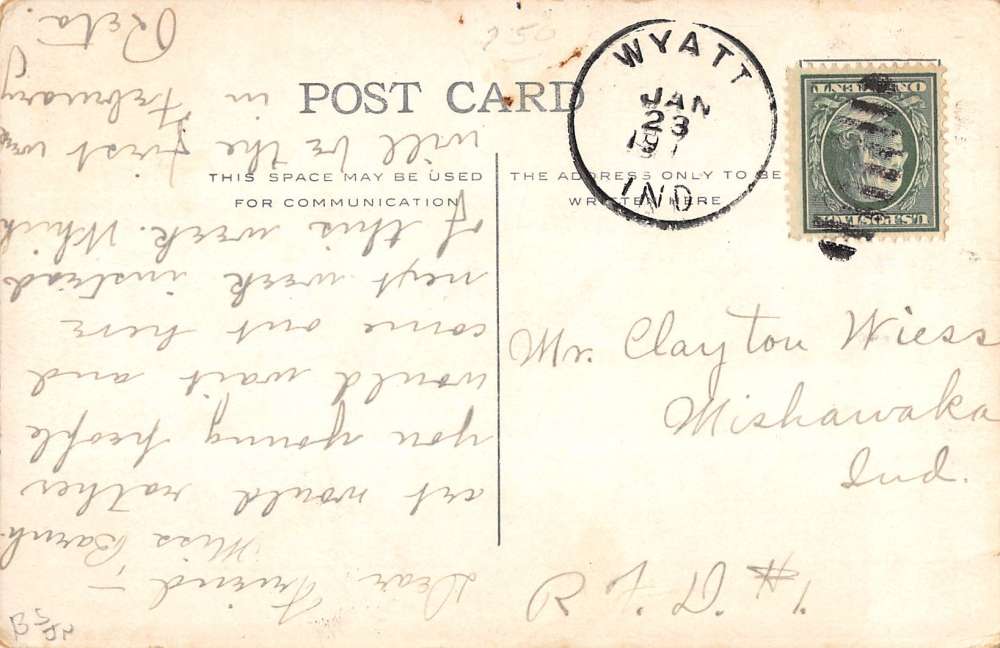 POST CARD
THIS SPACE MAY BE USED
FOR COMMUNICATION
THE ADDRESS ONLY TO BE
WRITTEN HERE
WYATT
JAN
23
IND.
U.S. POSTAGE
ONE CENT
Mr. Clayton Wiess
Mishawaka
Ind.
R. F. D. #1
Dear Friend –
Miss Barnh-
art would rather
you young people
would wait and
come out here
next week instead
of this week. Which
will be the first week
in February
Reta.